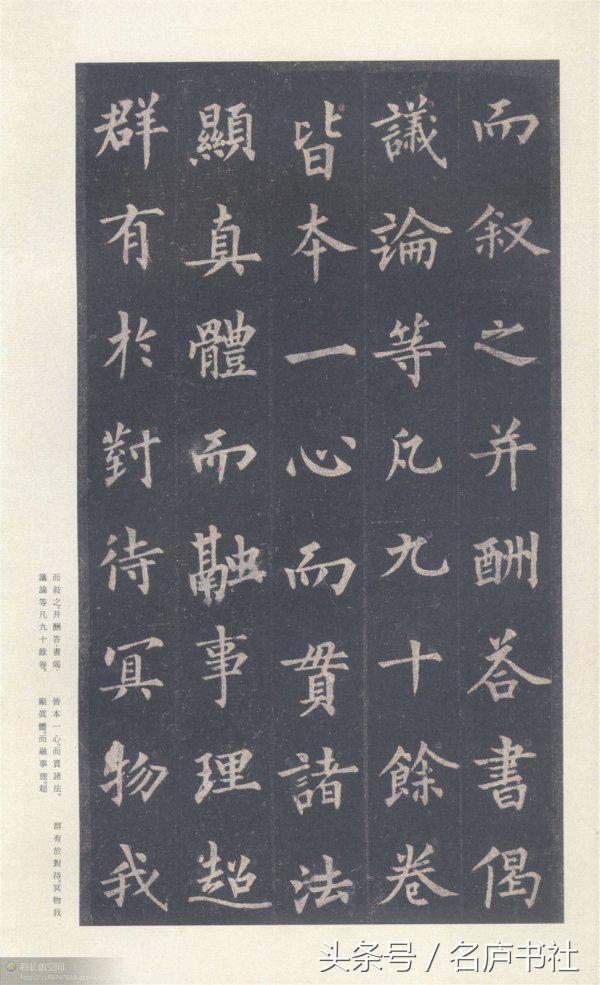 而叙之并酬荅書偈
議論等凡九十餘卷
皆本一心而貫諸法
顯真體而融事理超
群有於對待冥物我
而敍之。并酬答書偈·
議論等凡九十餘卷。
皆本一心。而貫諸法。
顯眞體。而融事理。超
群有於對待。冥物我
头条号 / 名庐书社
科长的空间